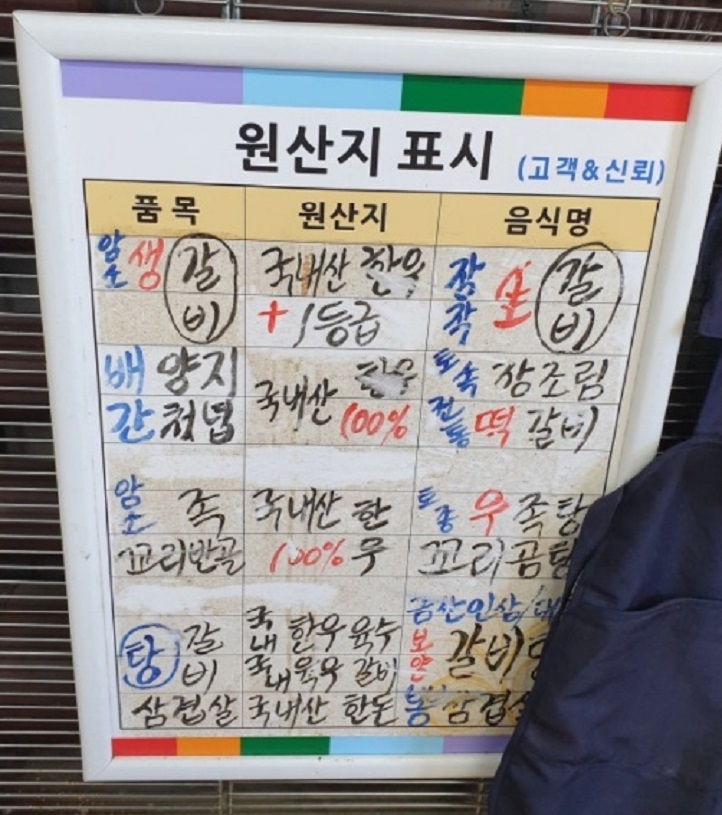 원산지 표시 (고객&신뢰)
품목 원산지 음식명
암소 생 갈비 국내산 한우 장작 소 갈비
+ 1등급
배 양지 국내산 한우 토속 장조림
간 천엽 100% 전통 떡 갈비
암소 족 국내산 한 토종 우 족탕
꼬리반골 100% 우 꼬리곰탕
금산인삼/대
탕 갈비 국내 한우 육수 보양 갈비
국내 육우 갈비
삼겹살 국내산 한돈 통 삼겹살